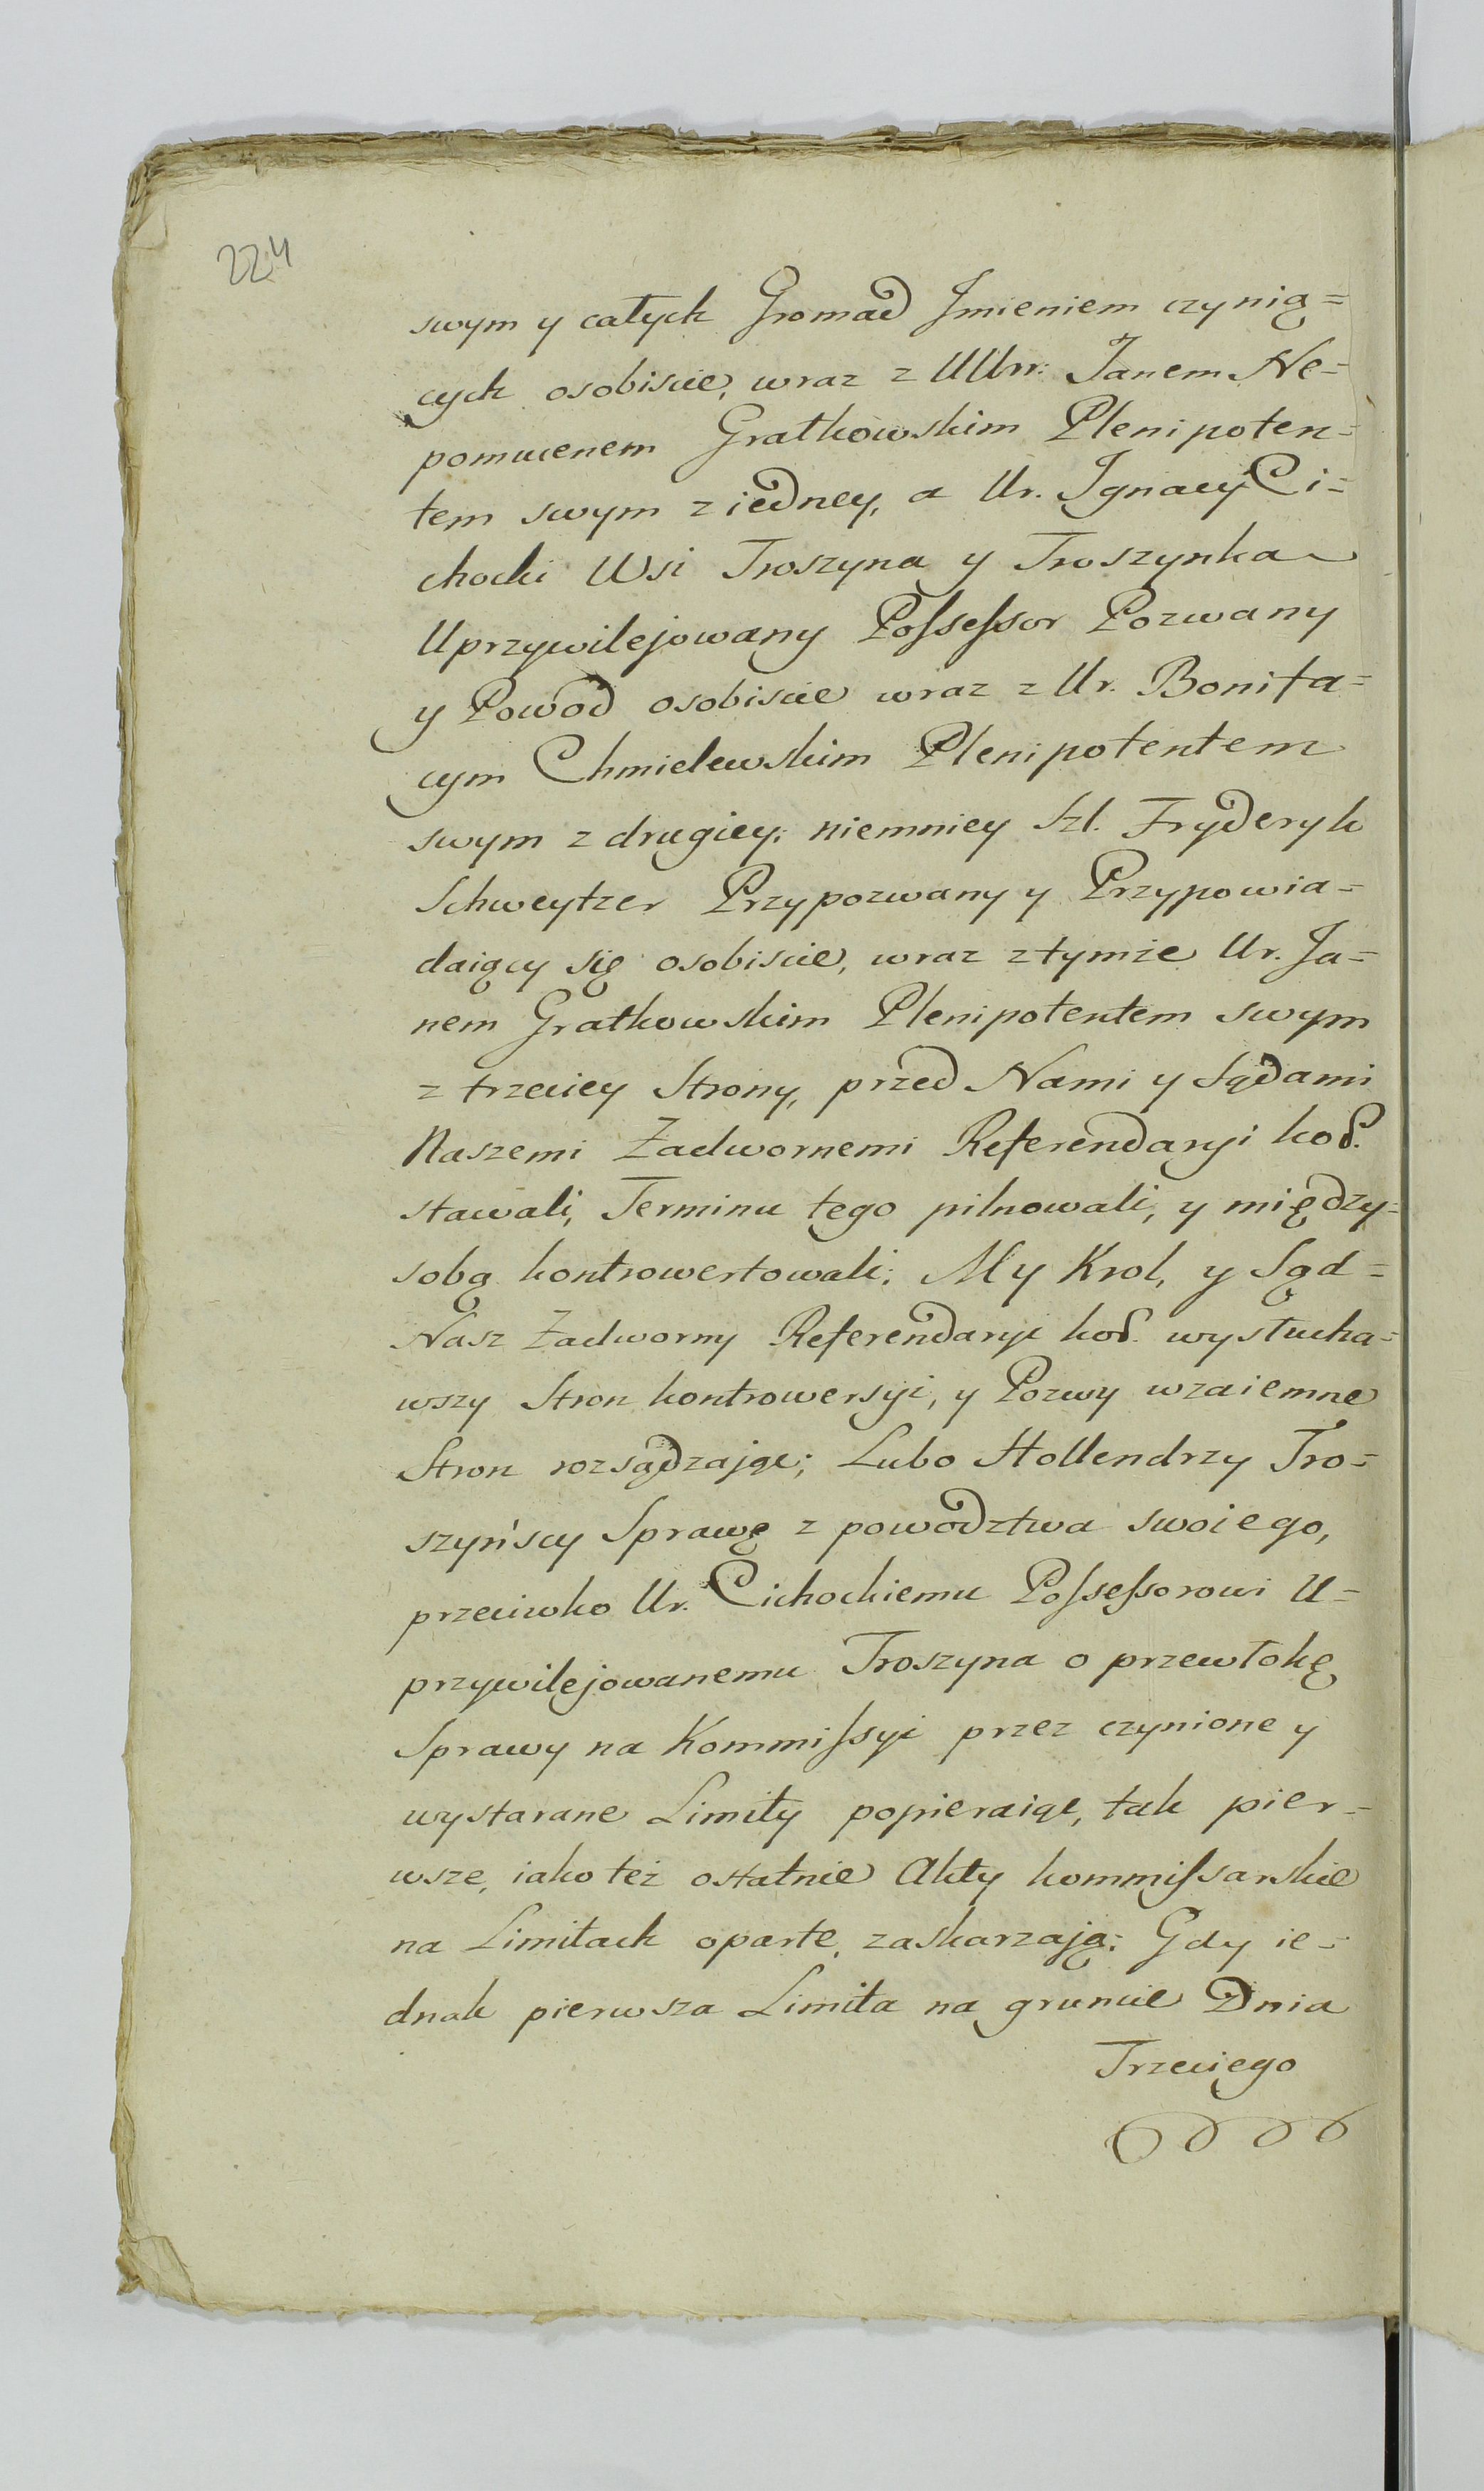 224
swym y całych Gromad Jmieniem czynią=
cych osobiscie, wraz z UUrr: Janem Ne=
pomucenem Gratkowskim Plenipoten=
tem swym z iedney, a Ur. Jgnacy Ci=
chocki Wsi Troszyna y Troszynka
Uprzywilejowany Possessor Pozwany
y Powod osobiscie wraz z Ur. Bonifa=
cym Chmielewskim Plenipotentem
swym z drugiey; niemniey Szl. Fryderyk
Schweytzer Przypozwany y Przypowia=
daiący się osobiscie, wraz z tymże Ur. Ja=
nem Gratkowskim Plenipotentem swym
z trzeciey Strony, przed Nami y Sądami
Naszemi Zadwornemi Referendaryi koδ.
stawali, Terminu tego pilnowali, y między=
sobą kontrowertowali; My Krol, y Sąd=
Nasz Zadworny Referendaryi koδ. wysłucha=
wszy Stron kontrowersyi, y Pozwy wzaiemne
Stron rozsądzając; Lubo Hollendrzy Tro=
szyńscy Sprawę z powodztwa swoiego,
przeciwko Ur. Cichockiemu Possessorowi U=
przywilejowanemu Troszyna o przewłokę
Sprawy na Kommissyi przez czynione y
wystarane Limity popieraiąc, tak pier=
wsze, iako też ostatnie Akty kommissarskie
na Limitach oparte, zaskarzają; Gdy ie=
dnak pierwsza Limita na gruncie Dnia
Trzeciego